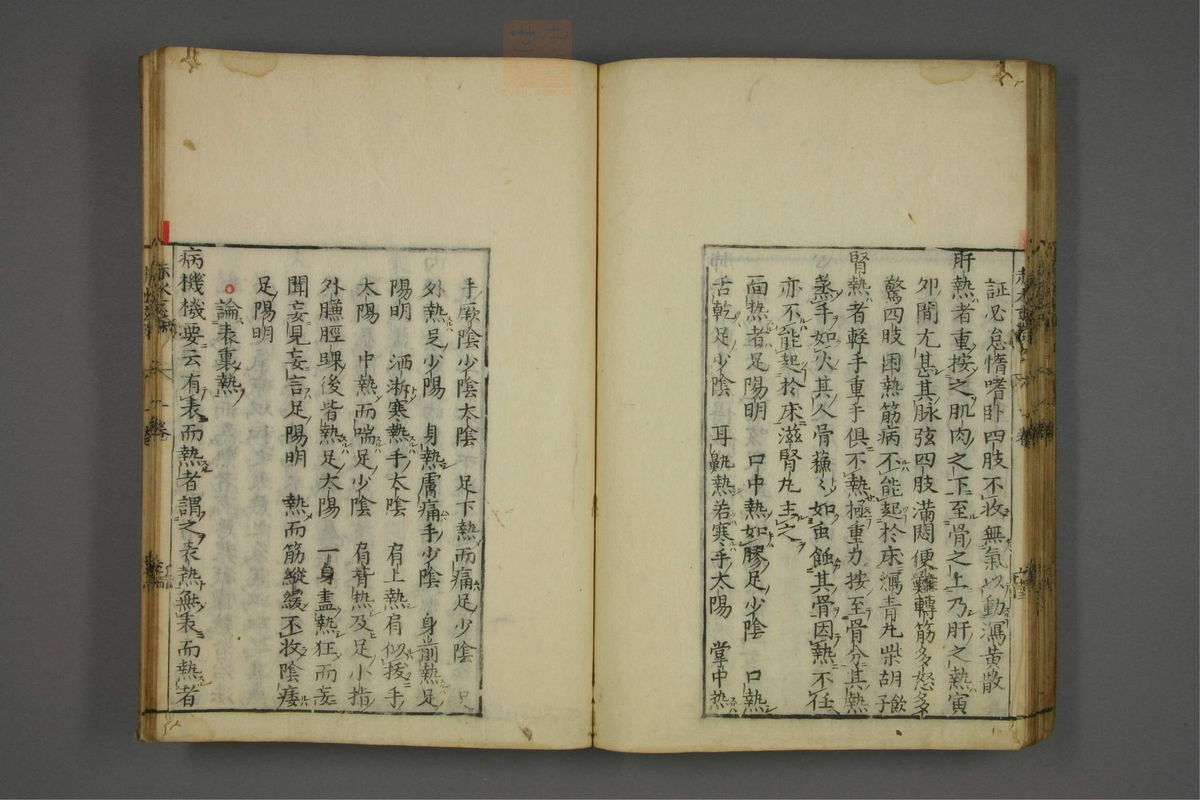 証必怠惰嗜卧四肢不收無氣以動瀉黄散
肝熱者重按之肌肉之下至骨之上乃肝之熱寅
夘間尤甚其脉弦四肢滿悶便難轉筋多怒多
驚四肢困熱筋病不能起於床瀉青丸柴胡飲子
腎熱者輕手重手俱不熱極重力按至骨分其熱
蒸手如火其人骨穌〻如虫蝕其骨因熱不任
亦不能起於床滋腎丸主之
面熱者足陽明　口中熱如膠足少陰　口熱
舌乾足少陰　耳聾熱若寒手太陽　掌中熱
手厥陰少陰太陰　足下熱而痛足少陰　足
外熱足少陽　身熱膚痛手少陰　身前熱足
陽明　洒淅寒熱手太陰　肩上熱肩似拔手
太陽　中熱而喘足少陰　肩背熱及足小指
外臁脛踝後皆熱足太陽　一身盡熱狂而妄
聞妄見妄言足陽明　熱而筋縱緩不收陰痿
足陽明
論表裏熱
病機機要云有表而熱者謂之表熱無表而熱者